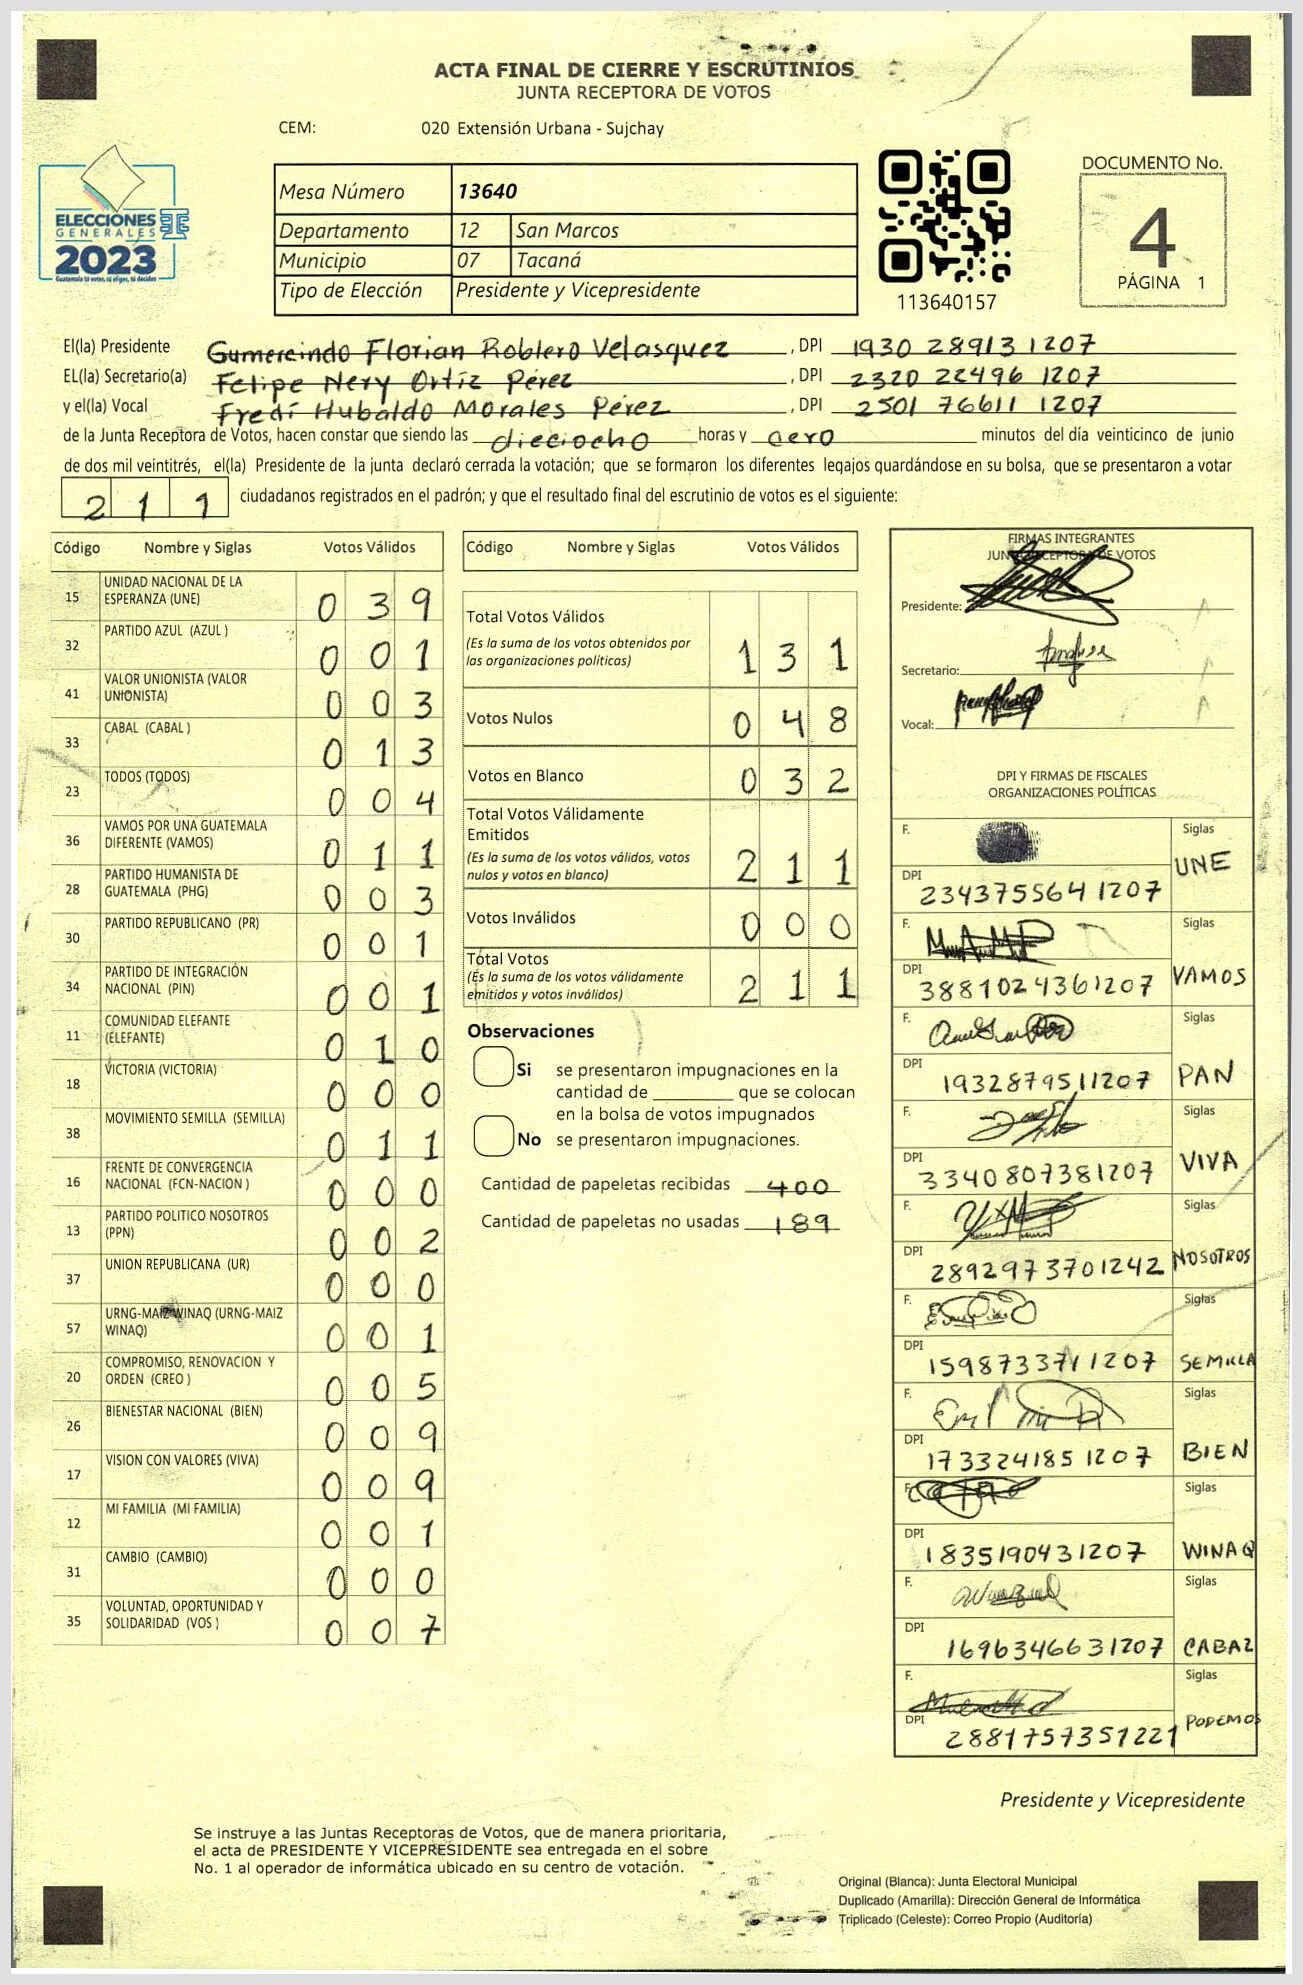 ACTA FINAL DE CIERRE Y ESCRUTINIOS
JUNTA RECEPTORA DE VOTOS
CEM: 020 Extensión Urbana - Sujchay
ELECCIONES
GENERALES
2023
Guatemala tú votas, tú eliges, tú decides
Mesa Número 13640
Departamento 12 San Marcos
Municipio 07 Tacaná
Tipo de Elección Presidente y Vicepresidente
113640157
DOCUMENTO No.
4
PÁGINA 1
El(la) Presidente Gumercindo Florian Roblero Velasquez, DPI 1930 28913 1207
EL(la) Secretario(a) Felipe Nery Ortíz Pérez, DPI 2320 22496 1207
y el(la) Vocal Fredi Hubaldo Morales Pérez, DPI 2501 76611 1207
de la Junta Receptora de Votos, hacen constar que siendo las dieciocho horas y cero minutos del día veinticinco de junio
de dos mil veintitrés, el(la) Presidente de la junta declaró cerrada la votación; que se formaron los diferentes legajos guardándose en su bolsa, que se presentaron a votar
211 ciudadanos registrados en el padrón; y que el resultado final del escrutinio de votos es el siguiente:
Código Nombre y Siglas Votos Válidos
15 UNIDAD NACIONAL DE LA
ESPERANZA (UNE) 039
32 PARTIDO AZUL (AZUL ) 001
41 VALOR UNIONISTA (VALOR
UNIONISTA) 003
33 CABAL (CABAL ) 013
23 TODOS (TODOS) 004
36 VAMOS POR UNA GUATEMALA
DIFERENTE (VAMOS) 011
28 PARTIDO HUMANISTA DE
GUATEMALA (PHG) 003
30 PARTIDO REPUBLICANO (PR) 001
34 PARTIDO DE INTEGRACIÓN
NACIONAL (PIN) 001
11 COMUNIDAD ELEFANTE
(ELEFANTE) 010
18 VICTORIA (VICTORIA) 000
38 MOVIMIENTO SEMILLA (SEMILLA) 011
16 FRENTE DE CONVERGENCIA
NACIONAL (FCN-NACION ) 000
13 PARTIDO POLITICO NOSOTROS
(PPN) 002
37 UNION REPUBLICANA (UR) 000
57 URNG-MAIZ WINAQ (URNG-MAIZ
WINAQ) 001
20 COMPROMISO, RENOVACION Y
ORDEN (CREO ) 005
26 BIENESTAR NACIONAL (BIEN) 009
17 VISION CON VALORES (VIVA) 009
12 MI FAMILIA (MI FAMILIA) 001
31 CAMBIO (CAMBIO) 000
35 VOLUNTAD, OPORTUNIDAD Y
SOLIDARIDAD (VOS ) 007
Código Nombre y Siglas Votos Válidos
Total Votos Válidos
(Es la suma de los votos obtenidos por
las organizaciones políticas) 131
Votos Nulos 048
Votos en Blanco 032
Total Votos Válidamente
Emitidos
(Es la suma de los votos válidos, votos
nulos y votos en blanco) 211
Votos Inválidos 000
Total Votos
(Es la suma de los votos válidamente
emitidos y votos inválidos) 211
Observaciones
Si se presentaron impugnaciones en la
cantidad de ________ que se colocan
en la bolsa de votos impugnados
No se presentaron impugnaciones.
Cantidad de papeletas recibidas 400
Cantidad de papeletas no usadas 189
FIRMAS INTEGRANTES
JUNTA RECEPTORA DE VOTOS
Presidente:
Secretario:
Vocal:
DPI Y FIRMAS DE FISCALES
ORGANIZACIONES POLÍTICAS
F. Siglas
DPI 234375564 1207 UNE
F. Siglas
DPI 3881024361207 VAMOS
F. Siglas
DPI 1932879511207 PAN
F. Siglas
DPI 3340807381207 VIVA
F. Siglas
DPI 2892973701242 NOSOTROS
F. Siglas
DPI 1598733711207 SEMILLA
F. Siglas
DPI 173324185 1207 BIEN
F. Siglas
DPI 1835190431207 WINAQ
F. Siglas
DPI 1696346631207 CABAL
F. Siglas
DPI 2881757351221 PODEMOS
Presidente y Vicepresidente
Se instruye a las Juntas Receptoras de Votos, que de manera prioritaria,
el acta de PRESIDENTE Y VICEPRESIDENTE sea entregada en el sobre
No. 1 al operador de informática ubicado en su centro de votación.
Original (Blanca): Junta Electoral Municipal
Duplicado (Amarilla): Dirección General de Informática
Triplicado (Celeste): Correo Propio (Auditoría)